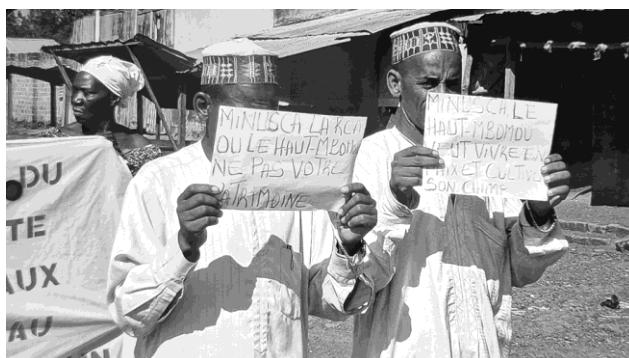 DU
TE
AUX
AU
MINUSCA LA RCA
OU LE HAUT-MBOM
NE PAS VOTRE
ATRIMOINE
MINUSCA LE
HAUT-MBOMOU
EUT VIVRE EN
AIX ET CULTIVE
SON